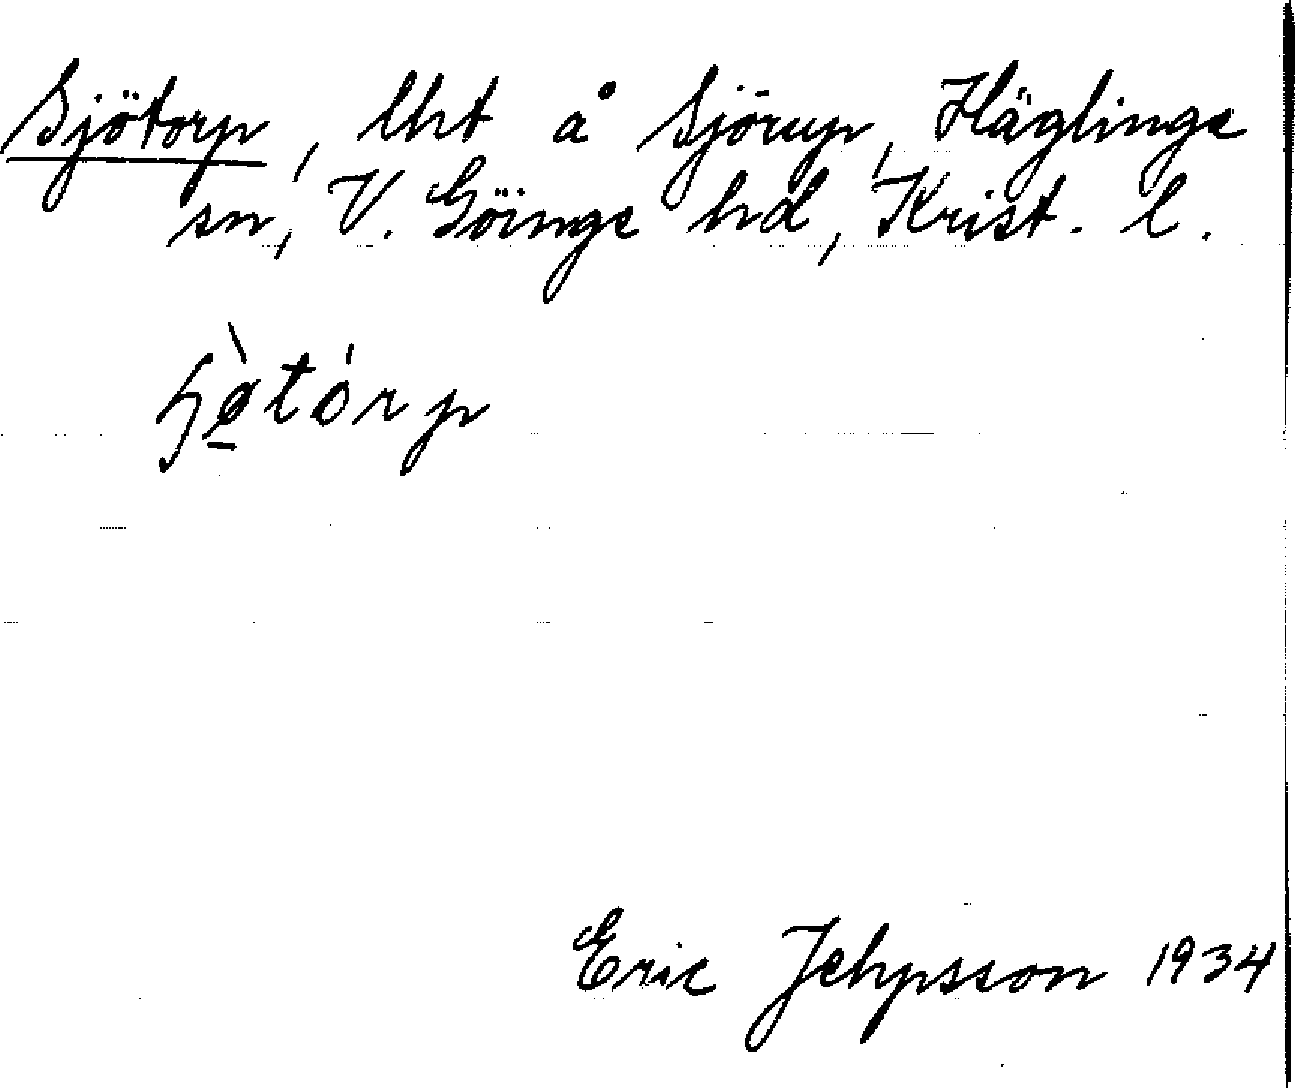 Sjötorp, lht å Sjörup, Häglinge
sn, V. Göinge hd, Krist. l.
ɧø̀tórp
Eric Jehpsson 1934